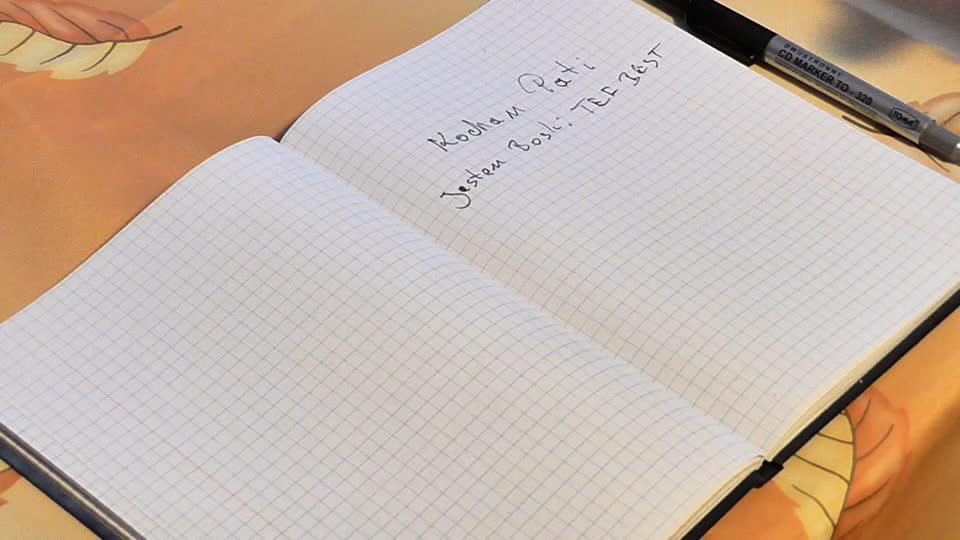 Kocham Pati
Jestem Boski TEE BEST
DWUSTRONNY
CD MARKER TO - 320
Toma